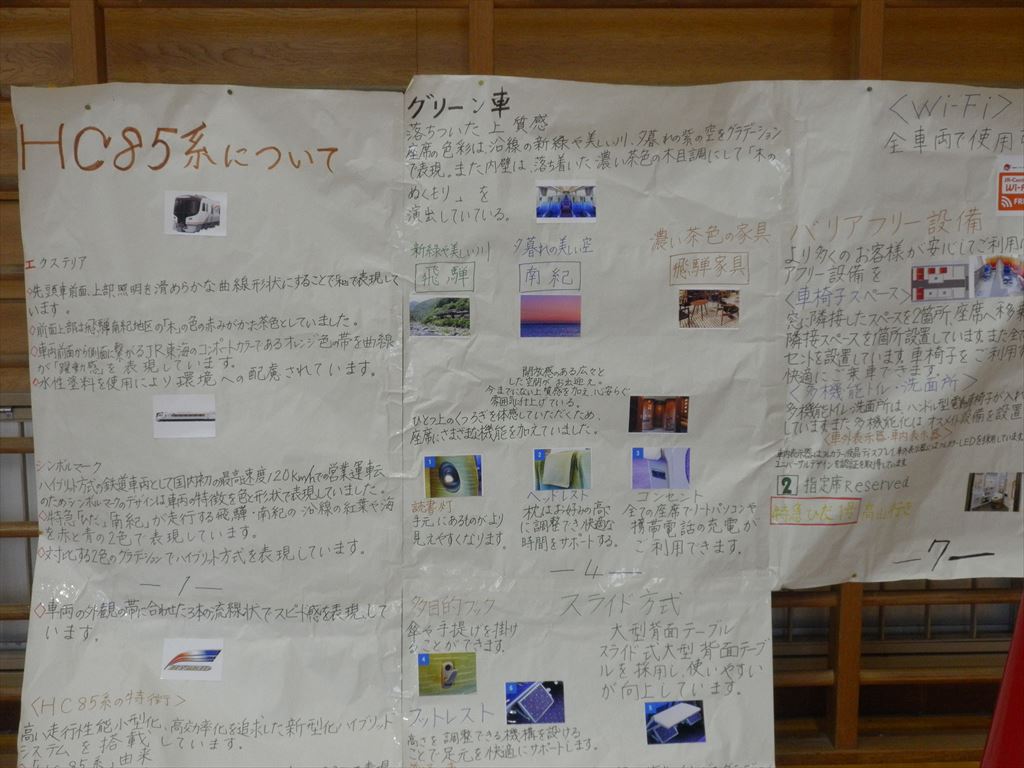 HC85系について
エクステリア
◇先頭車前面、上部照明を滑らかな曲線形状にすることで和で表現して
います。
◇前面上部は飛騨南紀地区の「木」の色の赤みがかった茶色としていました。
◇車両前面から側面に繋がるJR東海のコーポートカラーであるオレンジ色の帯を曲線
が「躍動感」を表現しています。
◇水性塗料を使用により環境への配慮されています。
シンボルマーク
ハイブリット方式の鉄道車両として国内初の最高速度120km/hで営業運転
のためシンボルマークのデザインは車両の特徴を色と形状で表現していました。
◇特急「ひだ」「南紀」が走行する飛騨・南紀の沿線の紅葉や海
を赤と青の2色で表現しています。
◇対になる2色のグラデーションでハイブリット方式を表現しています。
—1—
◇車両の外観の帯に合わせた3本の流線状でスピード感を表現して
います。
〈HC85系の特徴〉
高い走行性能、小型化、高効率化を追求した新型ハイブリッド
システムを搭載しています。
グリーン車
落ちついた上質感
座席の色彩は、沿線の新緑や美しい川、夕暮れの紫の空をグラデーション
で表現。また内壁は、落ち着いた濃い茶色の木目調にして「木の
ぬくもり」を
演出していている。
新緑や美しい川
飛騨
夕暮れの美しい空
南紀
濃い茶色の家具
飛騨家具
開放感ある広々と
した空間がお出迎え。
今までにない上質感を加え、心安らぐ
雰囲気仕上げている。
ひと上のくつろぎを体感していただくため、
座席にさまざまな機能を加えていました。
1
2
3
読書灯
手元にあるものがより
見えやすくなります。
ヘッドレスト
枕はお好みの高さ
に調整でき快適な
時間をサポートする。
コンセント
全ての座席でノートパソコンや
携帯電話の充電が
ご利用できます。
—4—
多目的フック
傘や手提げを掛け
ることができます。
4
フットレスト
6
高さを調整できる機構を設ける
ことで足元を快適にサポートします。
スライド方式
大型背面テーブル
スライド式大型背面テーブ
ルを採用し、使いやすい
が向上しています。
5
〈Wi-Fi〉
全車両で使用
Wi-Fi
バリアフリー設備
より多くのお客様が安心してご利用
アフリー設備を
〈車椅子スペース〉
に隣接したスペースを2箇所、座席へ移乗
隣接スペースを1箇所設置していますまた全て
セントを設置しています。車椅子をご利用
快適にご乗車できます。
〈多機能トイレ・洗面所〉
多機能トイレ・洗面所はハンドル型電動車椅子が入れ
していますまた多機能化はオスメイト設備を設置
〈車外表示器・車内表示器〉
2 指定席 Reserved
特急ひだ1号 高山行き
—7—